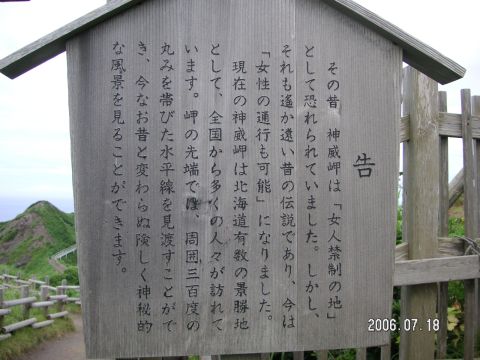 告
その昔、神威岬は「女人禁制の地」
として恐れられていました。しかし、
それも遙か遠い昔の伝説であり、今は
「女性の通行も可能」になりました。
現在の神威岬は北海道有数の景勝地
として、全国から多くの人々が訪れて
います。岬の先端では、周囲三百度の
丸みを帯びた水平線を見渡すことがで
き、今なお昔と変わらぬ険しく神秘的
な風景を見ることができます。
2006.07.18